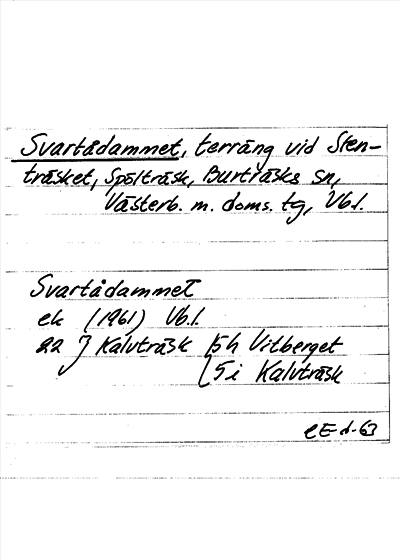 Svartådammet, terräng vid Sten-
träsket, Spölträsk, Burträsks sn,
Västerb. m. doms. tg, Vb.l.
Svartådammet
ek (1961) Vb.l.
22 J Kalvträsk 5h Vitberget
5i Kalvträsk